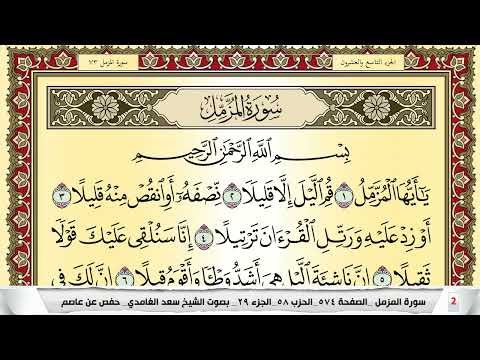 الجزء التاسع والعشرون
سورة المزمل ٧٣
سُورَةُ المُزَّمِّلِ
بِسْمِ ٱللَّهِ ٱلرَّحْمَٰنِ ٱلرَّحِيمِ
يَٰٓأَيُّهَا ٱلْمُزَّمِّلُ ١ قُمِ ٱلَّيْلَ إِلَّا قَلِيلًا ٢ نِّصْفَهُۥٓ أَوِ ٱنقُصْ مِنْهُ قَلِيلًا ٣
أَوْ زِدْ عَلَيْهِ وَرَتِّلِ ٱلْقُرْءَانَ تَرْتِيلًا ٤ إِنَّا سَنُلْقِى عَلَيْكَ قَوْلًا
ثَقِيلًا ٥ إِنَّ نَاشِئَةَ ٱلَّيْلِ هِىَ أَشَدُّ وَطْـًٔا وَأَقْوَمُ قِيلًا ٦ إِنَّ لَكَ فِى
2 سورة المزمل _الصفحة ٥٧٤_ الحزب ٥٨_ الجزء ٢٩_ بصوت الشيخ سعد الغامدي_ حفص عن عاصم